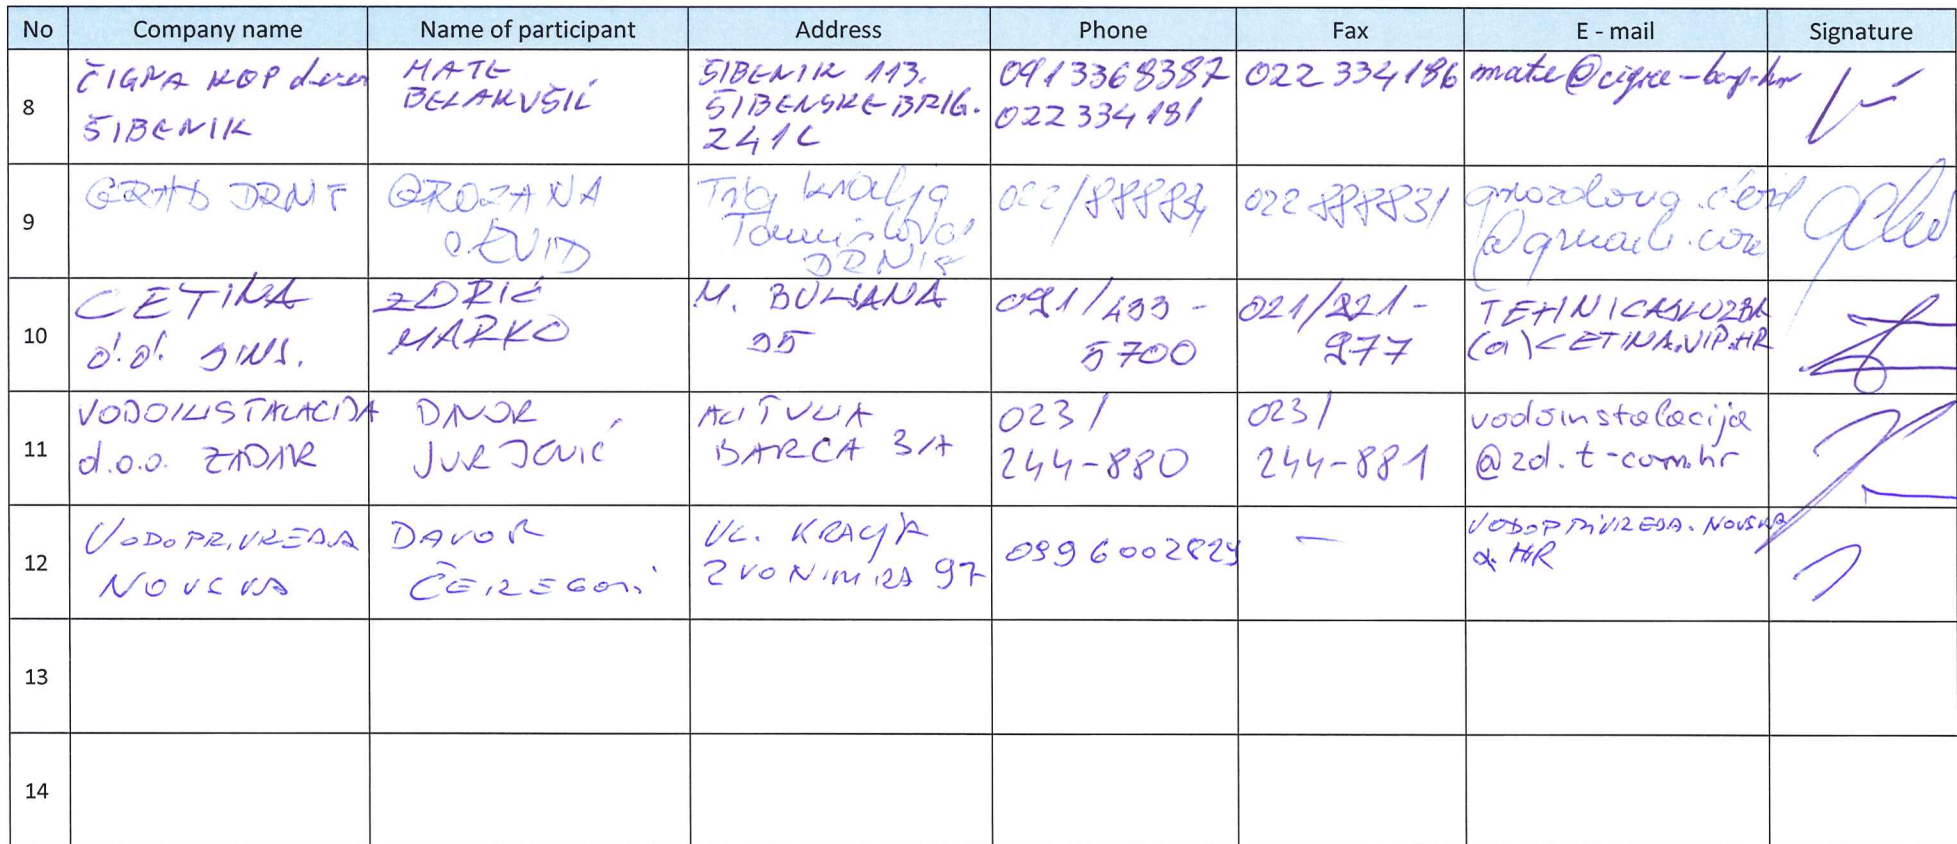 No Company name Name of participant Address Phone Fax E - mail Signature
8
ČIGRA KOP d.o.o.
ŠIBENIK
MATE
BELAKUŠIĆ
ŠIBENIK 113.
ŠIBENSKE BRIG.
241C
0913368387
022 334 181
022 334 186
9
GRAD DRNIŠ
Trg kralja
Tomislava
DRNIŠ
022 888831
@gmail.com
10
CETINA
d.d. SINJ.
ZDRIĆ
MARKO
M. BULJANA
95
091/433-
5700
021/821-
977
TEHNICASLUZBA
(a)CETINA.VIP.HR
11
VODOINSTALACIJA
d.o.o. ZADAR
DAVOR
JURJEVIĆ
BARCA 3/A
023/
244-880
023/
244-881
vodoinstalacija
@zd.t-com.hr
12
VODOPRIVREDA
NOVSKA
DAVOR
UL. KRALJA
ZVONIMIRA 97
0996002829
-
VODOPRIVREDA-NOVSKA
13
14